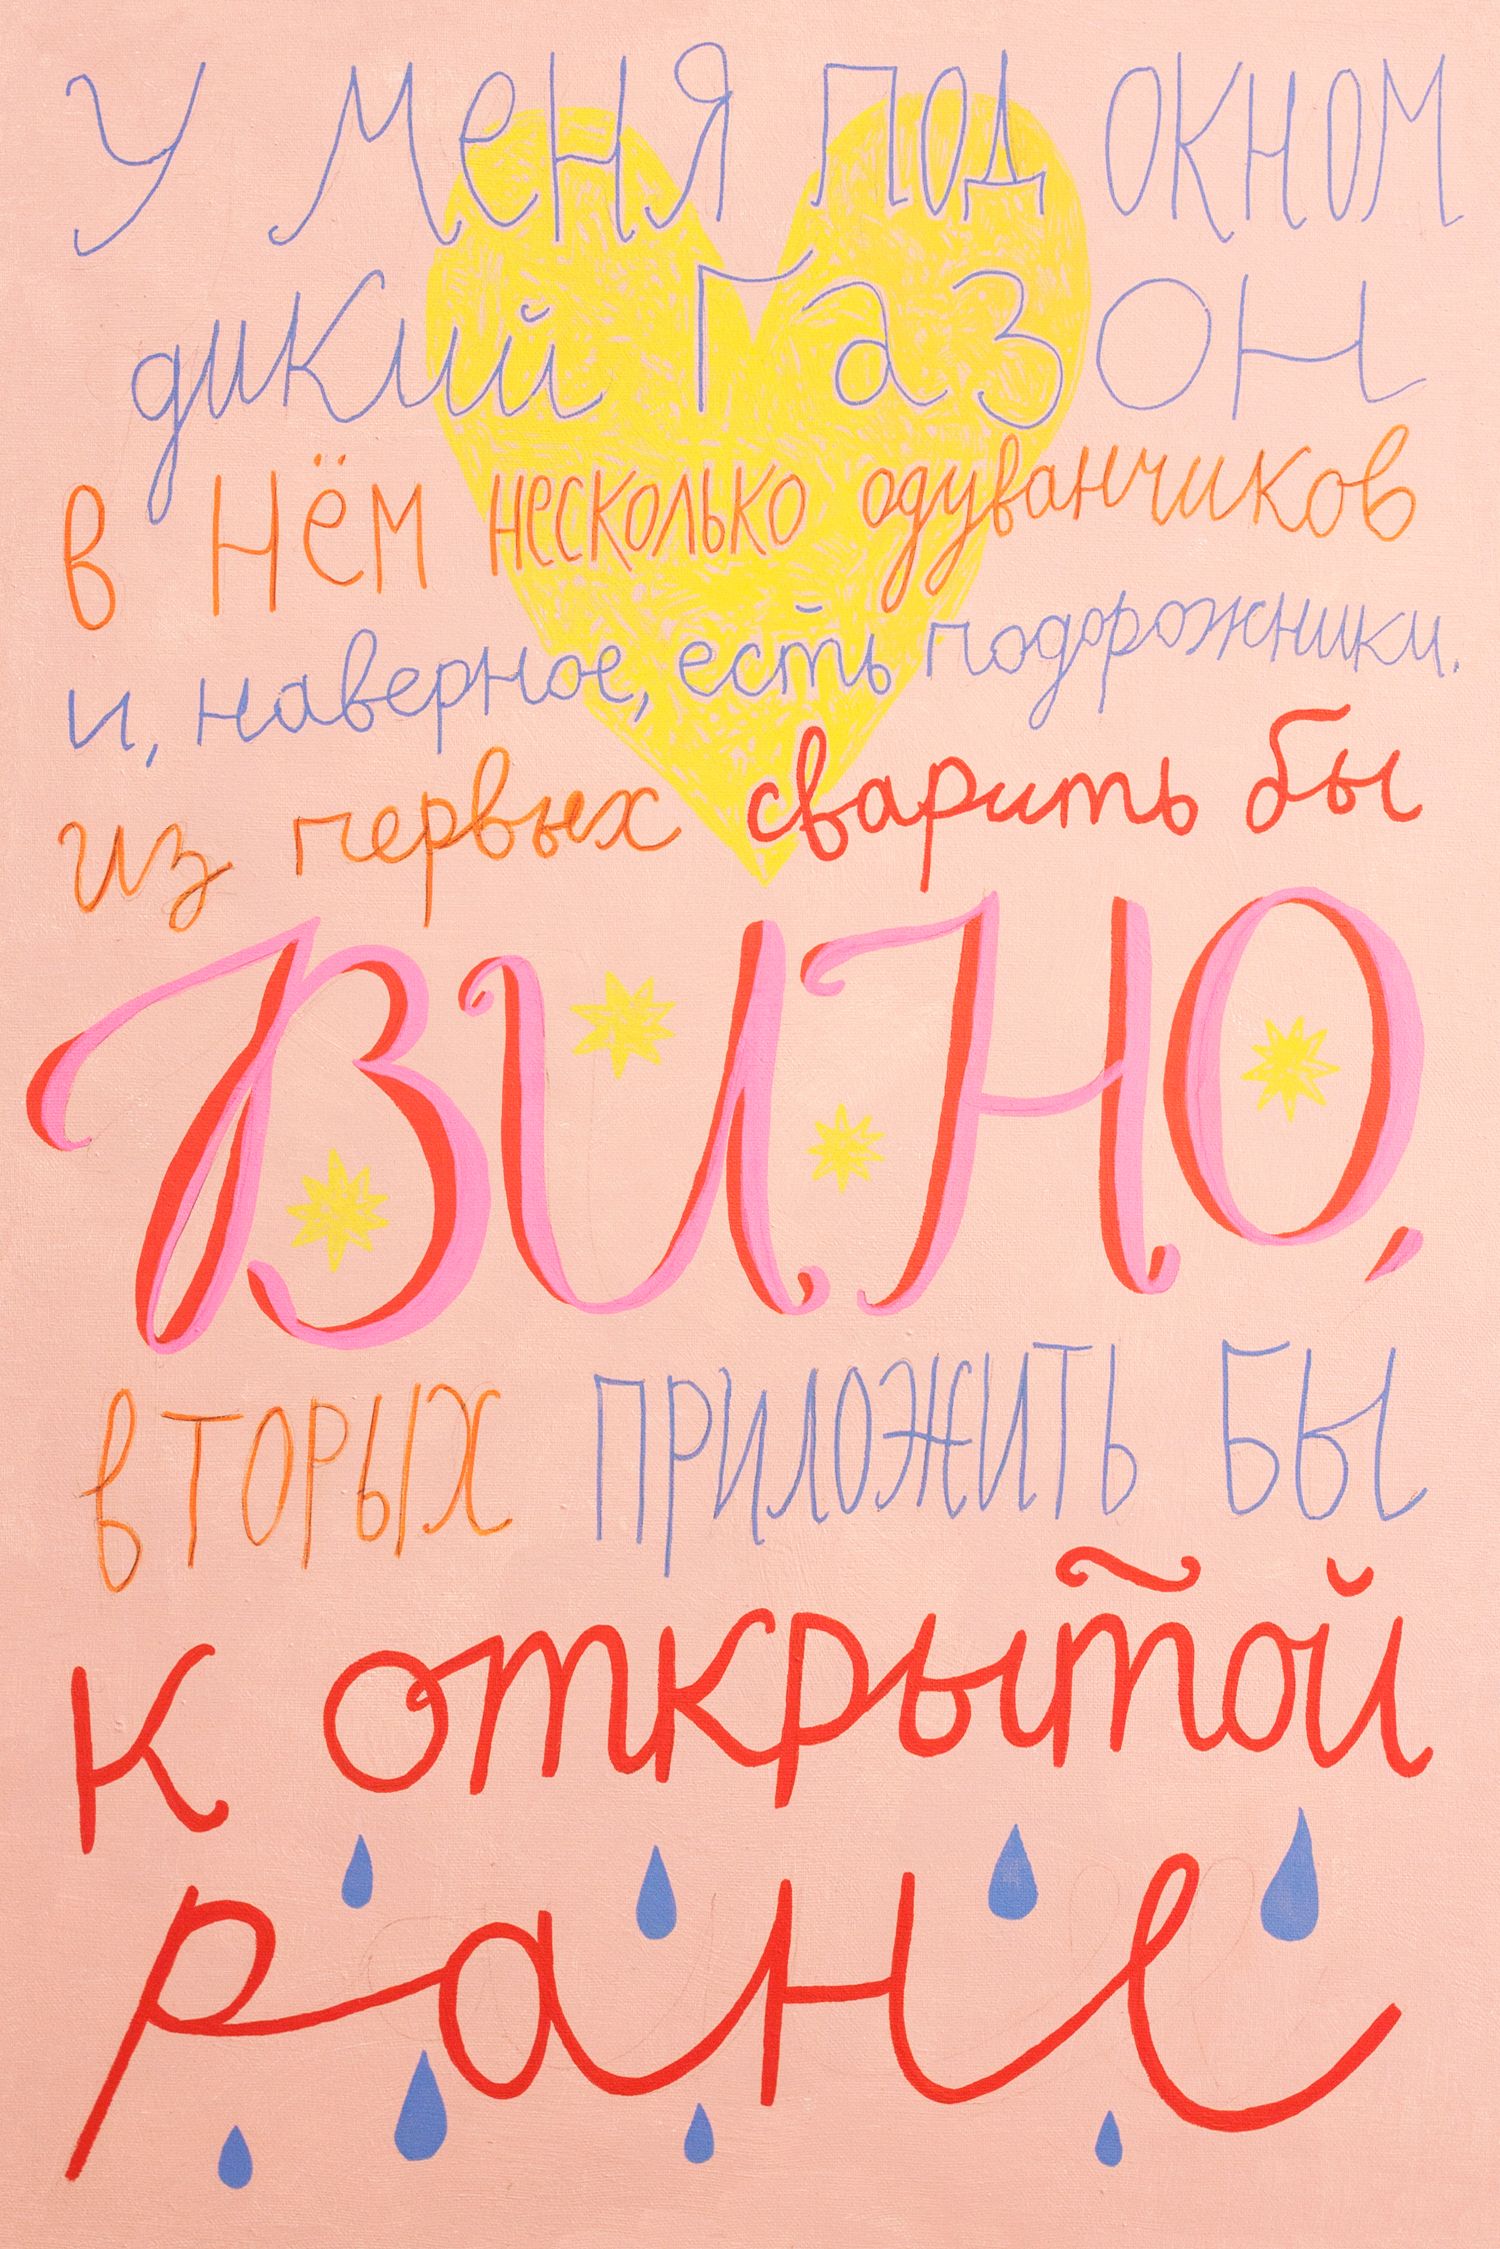 У меня под окном
дикий газон
в нём несколько одуванчиков
и, наверное, есть подорожники.
из первых сварить бы
ВИНО,
вторых приложить бы
к открытой
ране